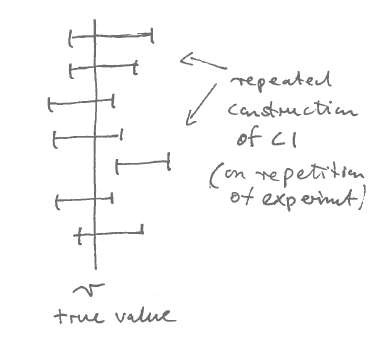 repeated
construction
of CI
(on repetition
of experimut)
true value